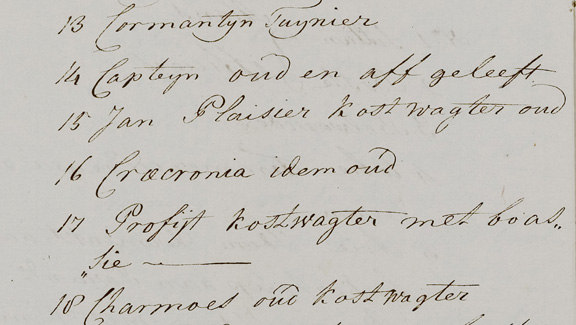 13 Cormantyn Tuynier
14 Capteyn oud en aff geleeft
15 Jan Plaisier kostwagter oud
16 Cræcronia idem oud
17 Profijt kostwagter met boas„
„sie
18 Charmoes oud kostwagter